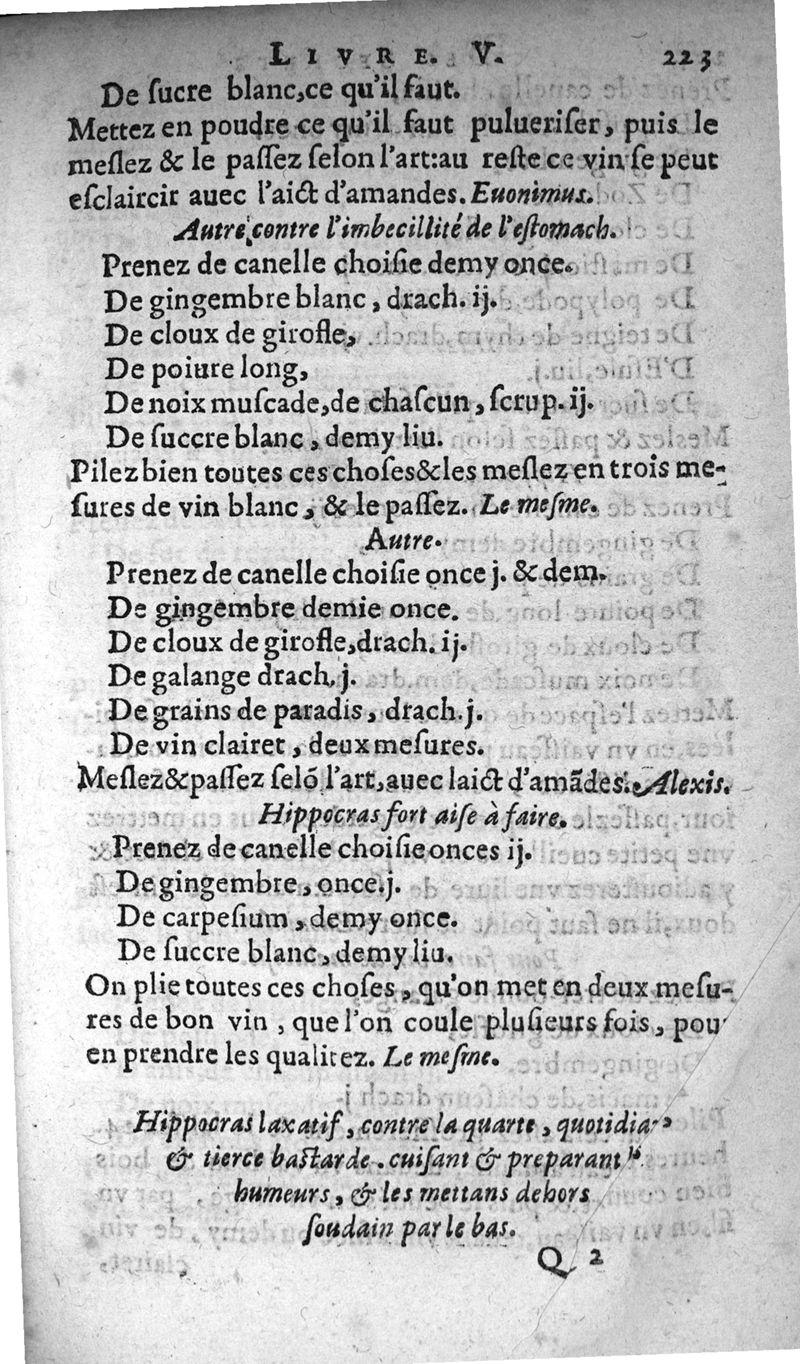 LIVRE. V. 223
De ſucre blanc,ce qu'il faut.
Mettez en poudre ce qu'il faut pulueriſer, puis le
meſlez & le paſſez ſelon l'art:au reſte ce vin ſe peut
eſclaircir auec l'aict d'amandes. Euonimus.
Autre contre l'imbecillité de l'eſtomach.
Prenez de canelle choiſie demy once.
De gingembre blanc, drach. ij.
De cloux de girofle,
De poiure long,
De noix muſcade,de chaſcun, ſcrup. ij.
De ſuccre blanc, demy liu.
Pilez bien toutes ces choſes&les meſlez en trois me-
ſures de vin blanc, & le paſſez. Le meſme.
Autre.
Prenez de canelle choiſie once j. & dem.
De gingembre demie once.
De cloux de girofle,drach. ij.
De galange drach. j.
De grains de paradis, drach. j.
De vin clairet, deux meſures.
Meſlez&paſſez ſelõ l'art,auec laict d'amãdes. Alexis.
Hippocras fort aiſe à faire.
Prenez de canelle choiſie onces ij.
De gingembre, once.j.
De carpeſium, demy once.
De ſuccre blanc, demy liu.
On plie toutes ces choſes, qu'on met en deux meſu-
res de bon vin, que l'on coule pluſieurs fois, pou
en prendre les qualitez. Le meſme.
Hippocras laxatif, contre la quarte, quotidia
& tierce baſtarde. cuiſant & preparant
humeurs, & les mettans dehors
ſoudain par le bas.
Q 2